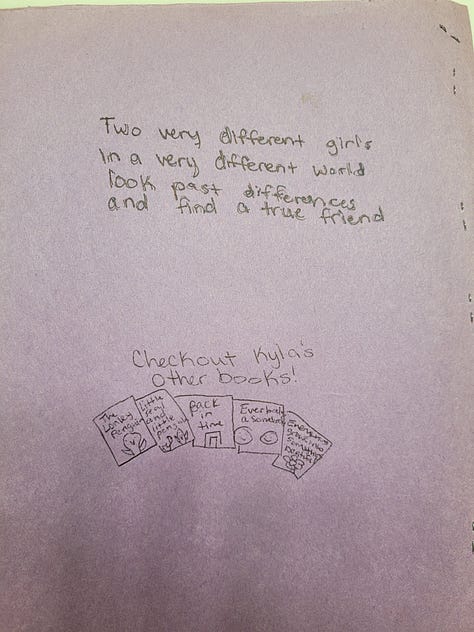 Two very different girls
in a very different world
look past differences
and find a true friend
Checkout Kyla's
other books!
The
Lonley
Penguin
little
seal
and
little
penguin
Back
in
time
Everybody
a somebody
Everyone
into
something